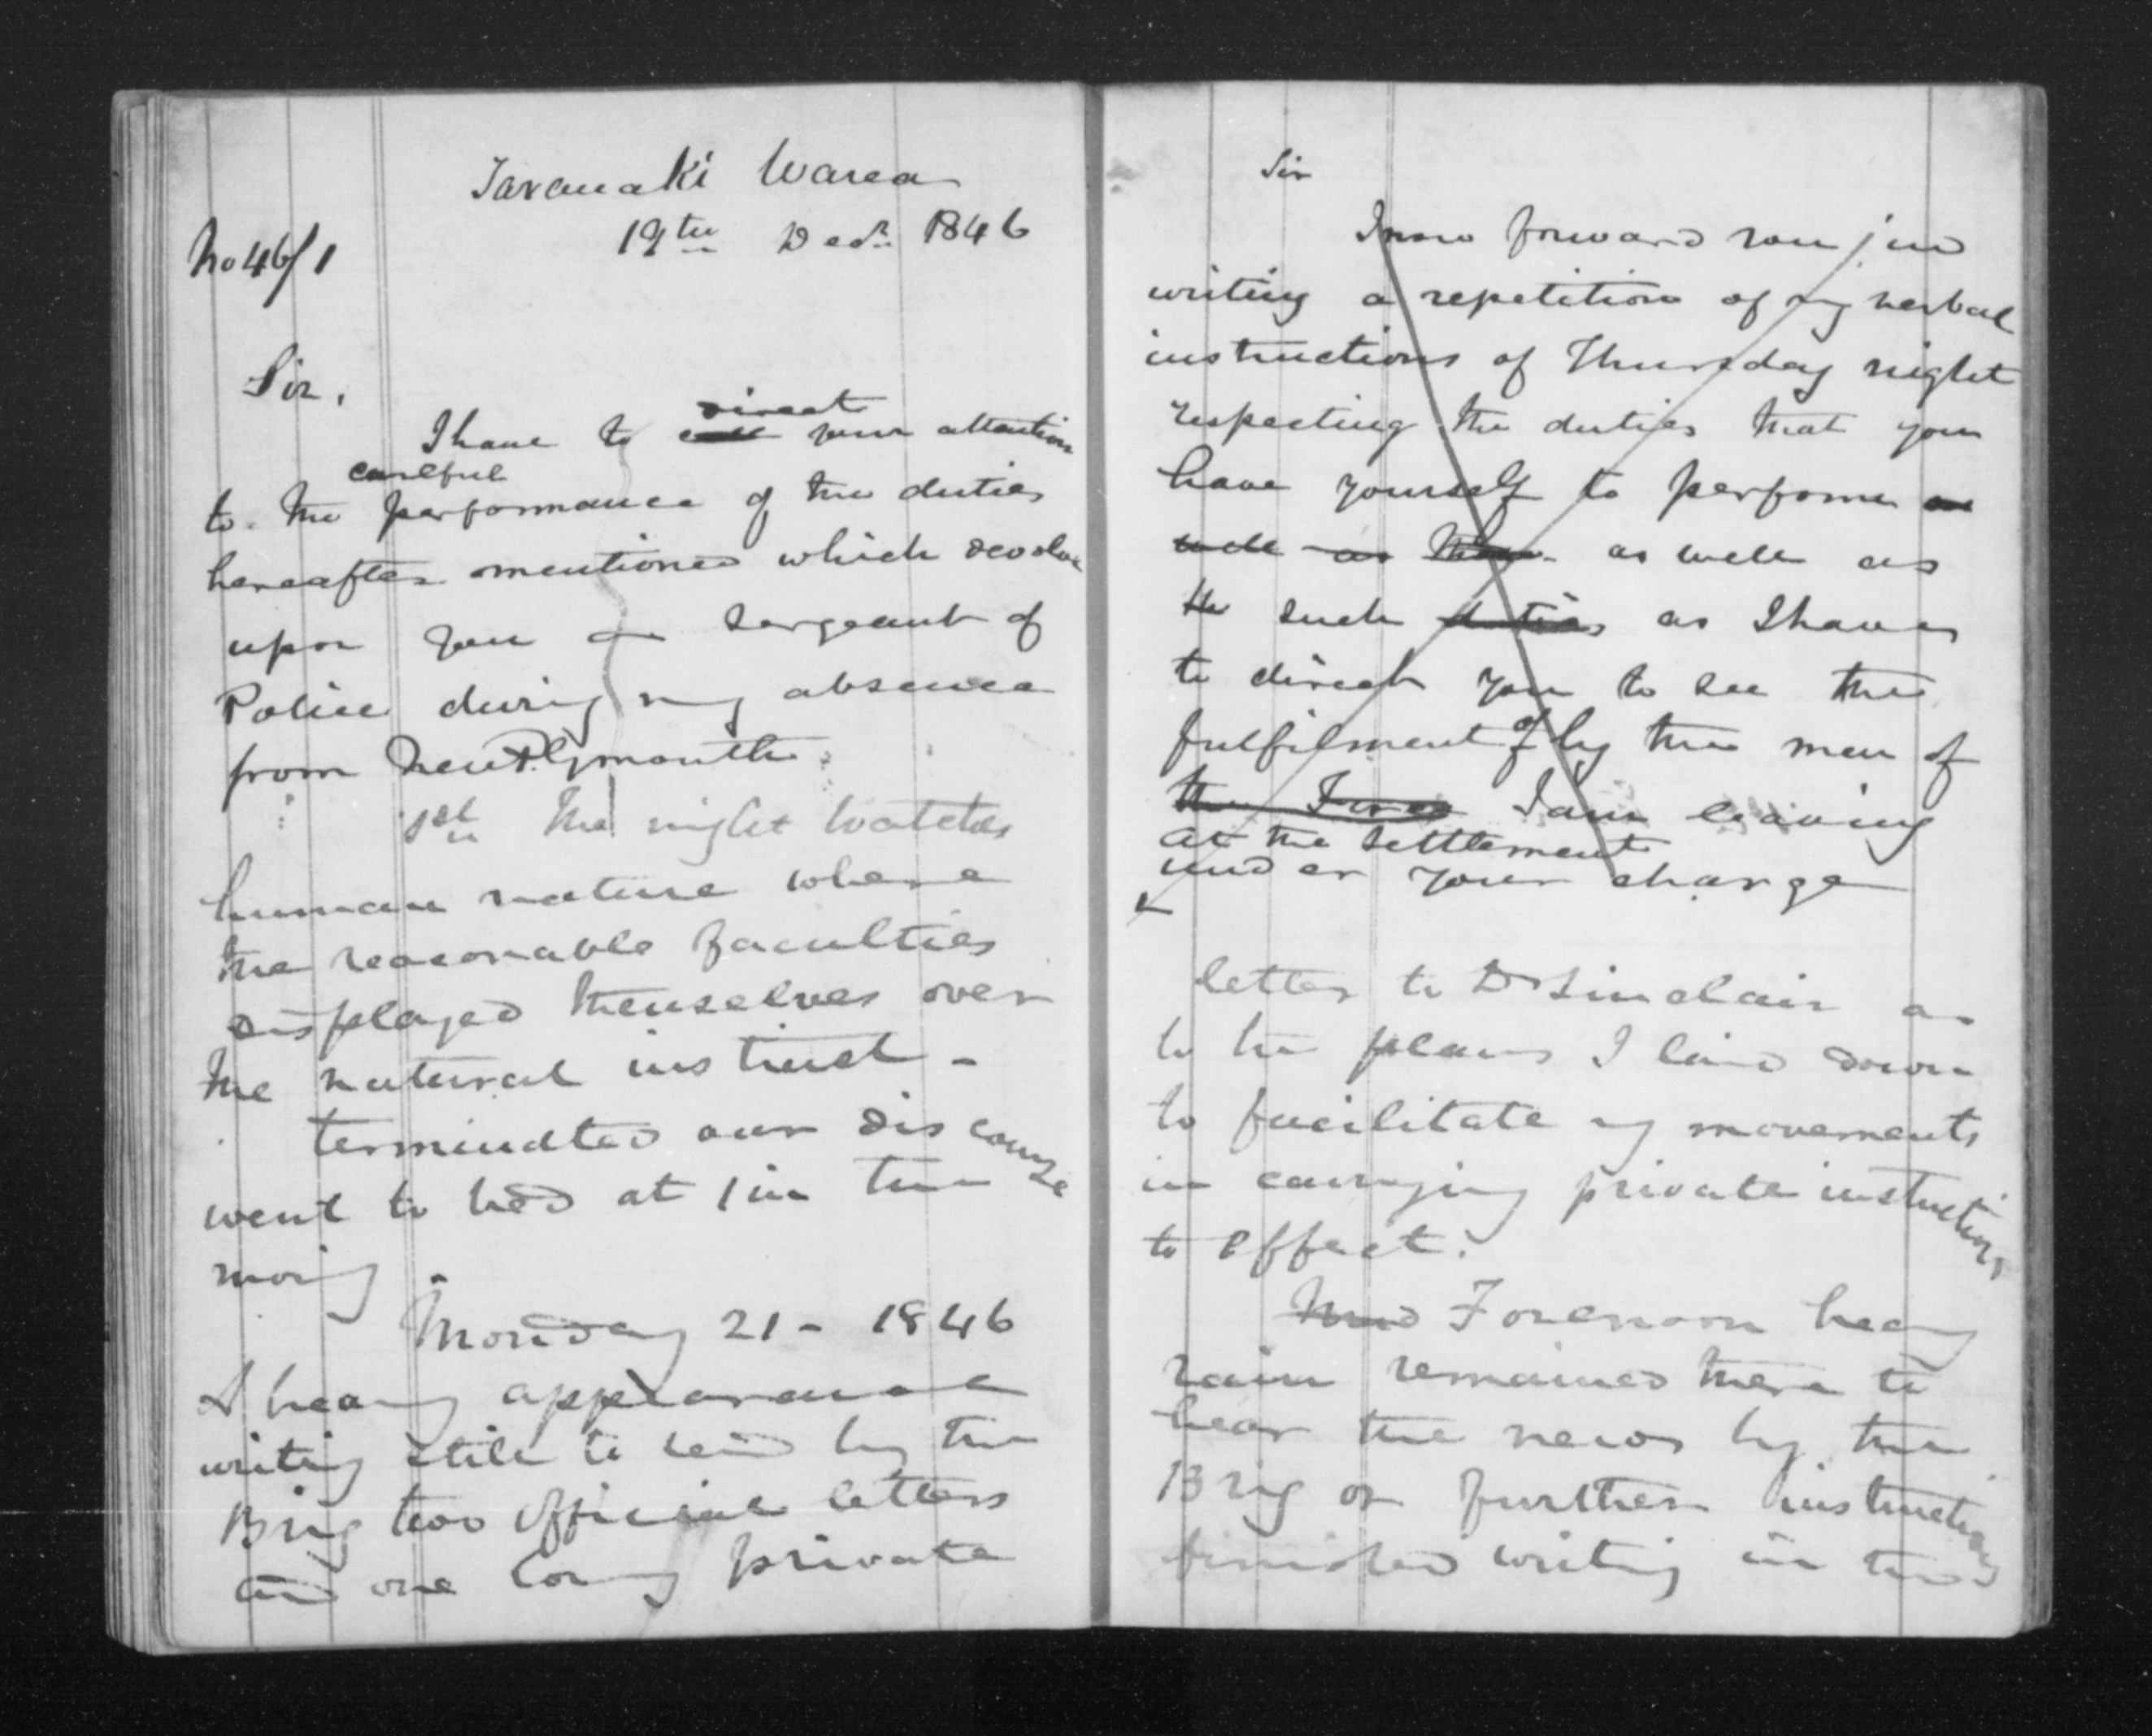 Taranaki Warea
19th Decr 1846
No 46/1
Sir,
direct
I have to call your attention
careful
to the performance of the duties
hereafter mentioned which devolve
upon you as Sergeant of
Police during my absence
from New Plymouth
1st The night Watches
human nature where
the reasonable faculties
displayed themselves over
the natural instinct -
terminated our discourse
went to bed at 1 in the
morning
Monday 21 - 1846
A heavy appearance
writing still to send by the
Brig two official letters
and one long private
Sir
I now forward you in
writing a repetition of my verbal
instructions of Thursday night
respecting the duties that you
have yourself to perform as
well as those as well as
the such duties as I have
to direct you to see the
fulfilment of by the men of
the Force I am leaving
at the settlement
under your charge
letter to Dr Sinclair as
to the plans I laid down
to facilitate my movements
in carrying private instructions
to effect.
Forenoon heavy
rain remained there to
hear the news by the
Brig or further instructions
finished writing in the